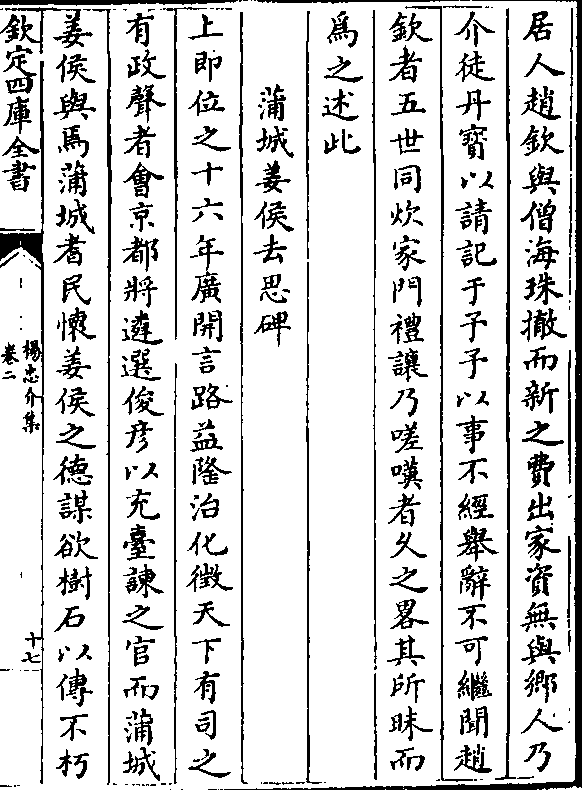 居人趙欽與僧海珠撤而新之費出家資無與鄉人乃
介徒丹寶以請記于予予以事不經舉辭不可繼聞趙
欽者五世同炊家門禮讓乃嗟嘆者久之畧其所昧而
爲之述此
蒲城姜侯去思碑
上即位之十六年廣開言路益隆治化徵天下有司之
有政聲者會京都將遴選俊彥以充臺諫之官而蒲城
姜侯與焉蒲城耆民懷姜侯之德謀欲樹石以傳不朽
欽定四庫全書
楊忠介集
卷二
十七